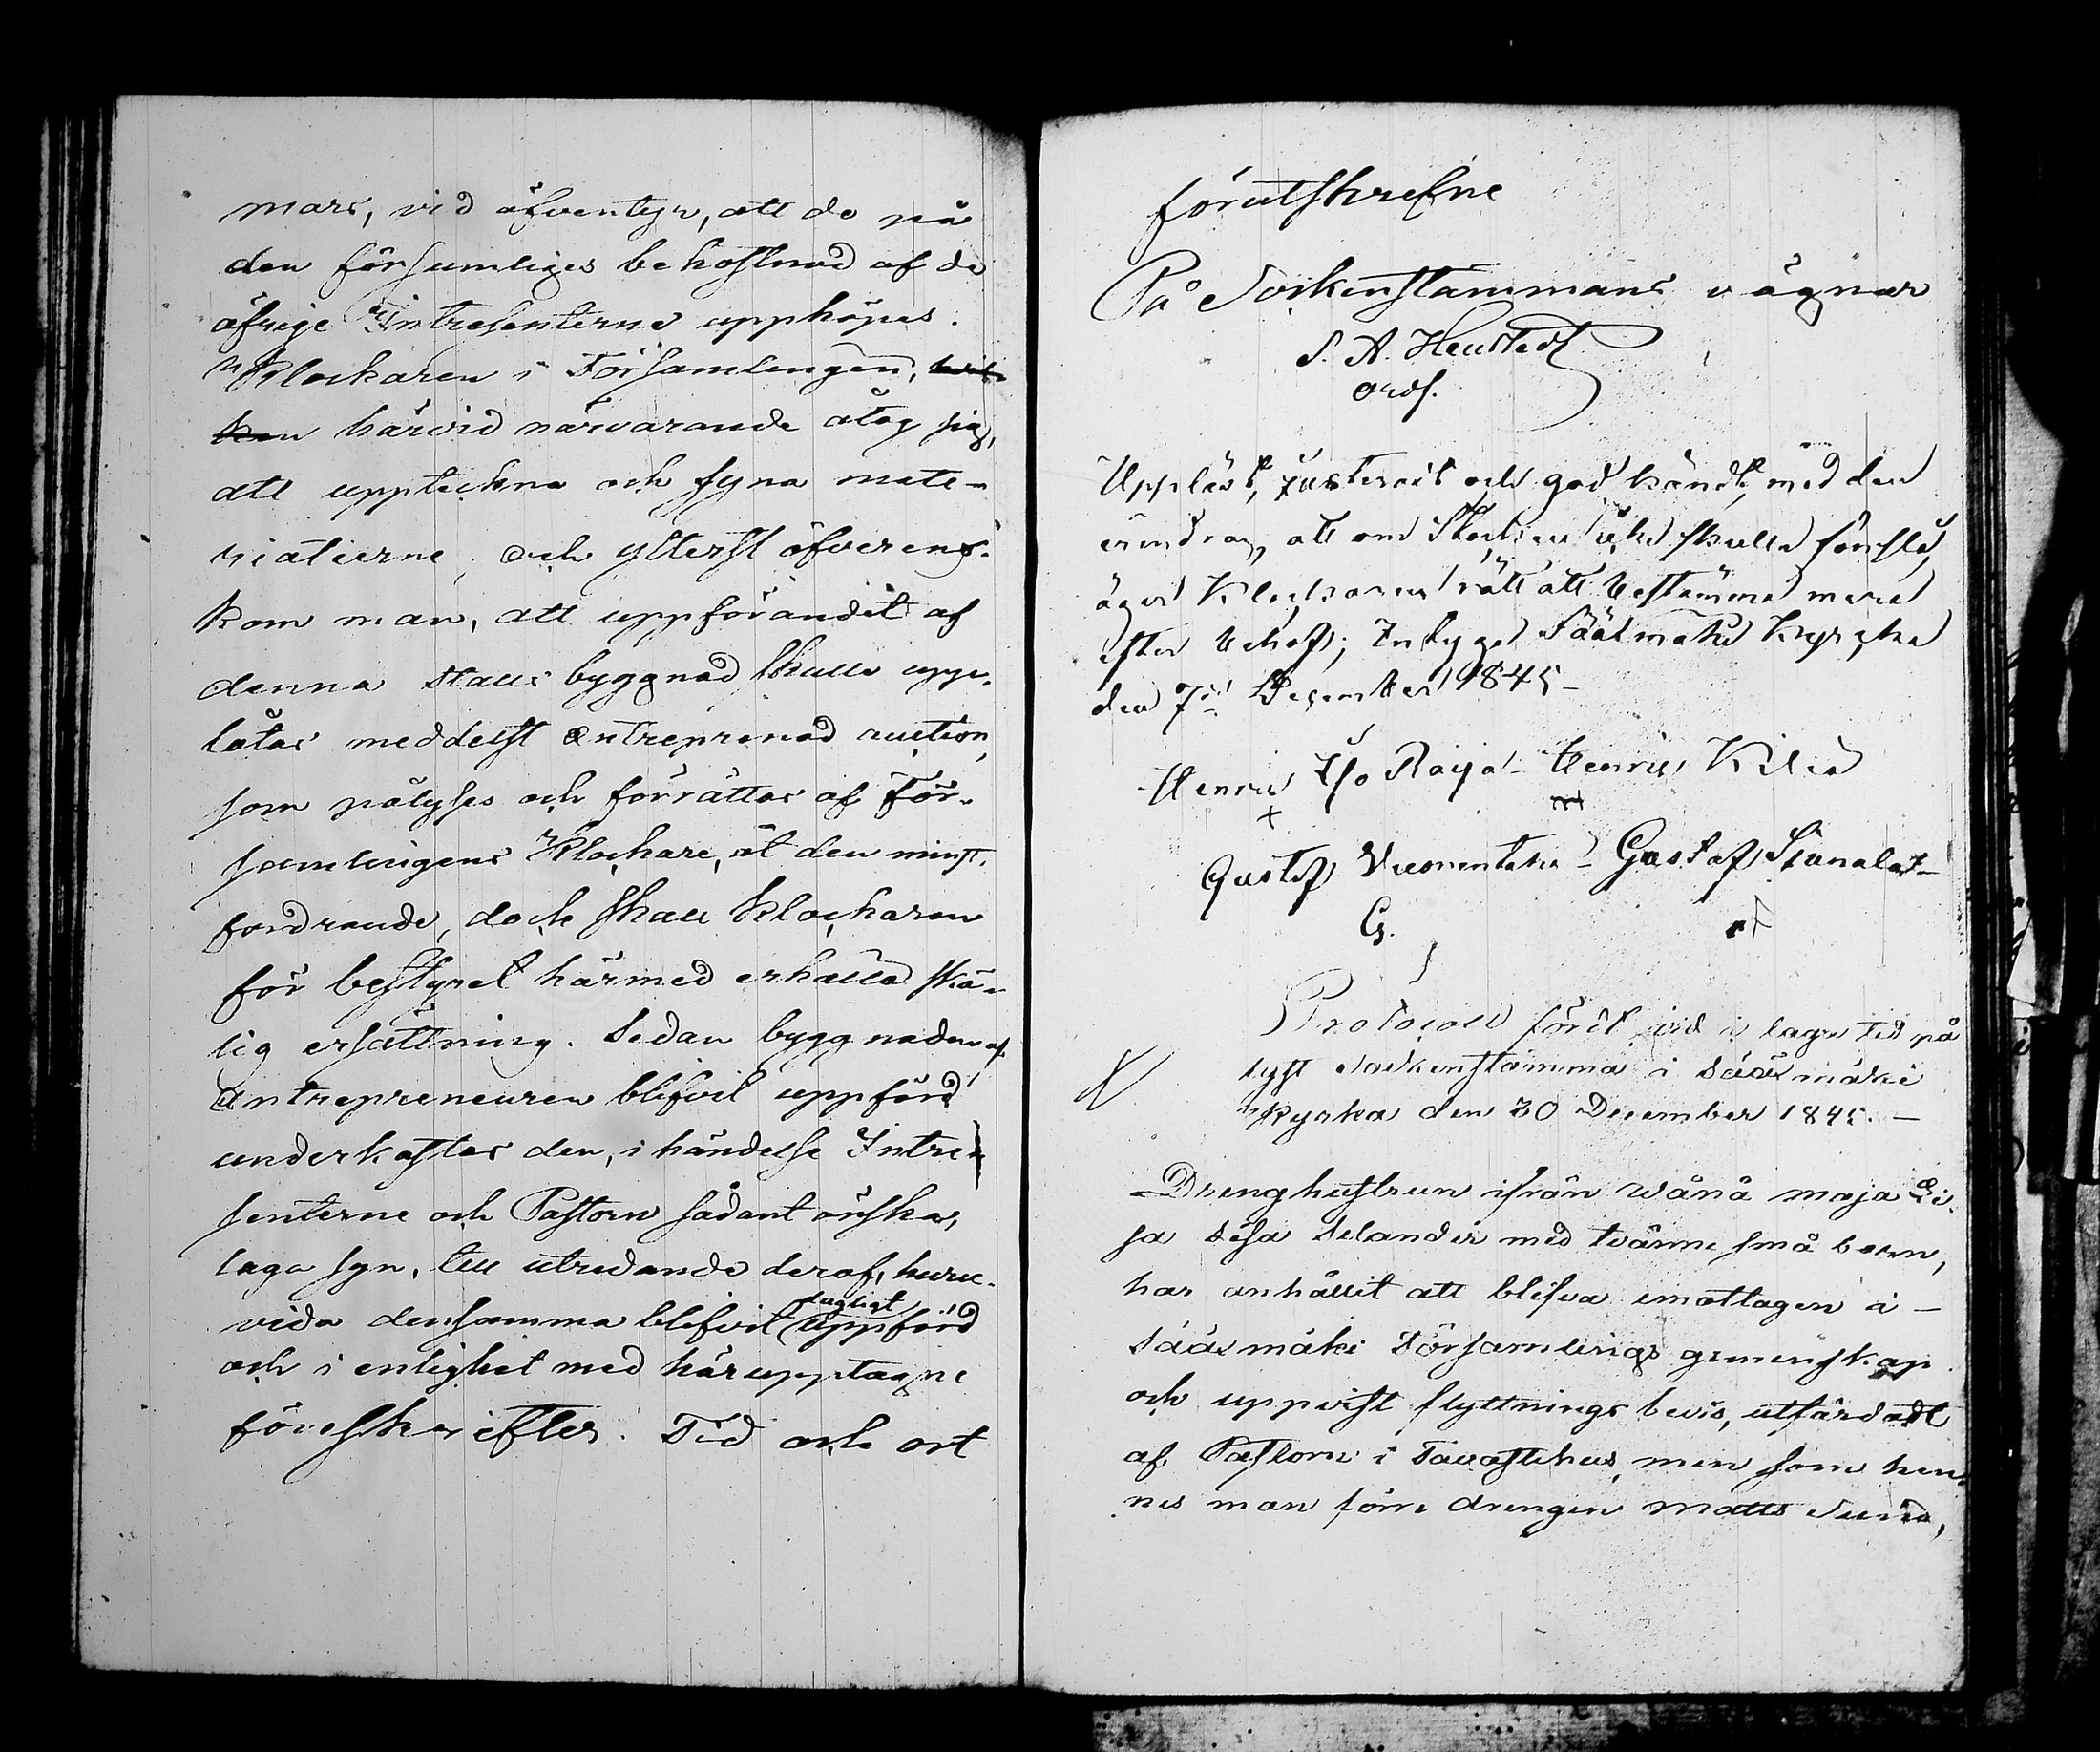 mars, vid äfventyr, att de på
den försumliges bekostnad af de
öfrige Intressenterne upphöpes.
Klockaren i Församlingen, hvil-
ken härvid närvarande åtog sig,
att uppteckna och syna mate-
rialierne, och ytterst öfverens-
kom man, att uppförandet af
denna stalls byggnad skulle upp-
låtas meddelst Entreprenad auction,
som pålyses och förrättas af För-
samlingens Klockare, åt den minst
fordrande, dock skall Klockaren
för bestyret härmed erhålla skä-
lig ersättning. Sedan byggnaden af
Entrepreneuren blifvit uppförd
underkastas den, i händelse Intres-
senterne och Pastorn sådant önskar,
laga syn, till utredande deraf, huru-
vida densamma blifvit dugligt uppförd
och i enlighet med här upptagne
föreskrifter. Tid och ort
förutskrefne
På Sockenstämmans vägnar
S. A. Heustedt
ords.
Uppläst, justerait och god kändt, med den
erindran, att om Stocken icke skulle förslå,
äger Klockaren rätt att bestämma mera
efter behof; Intygar Sääxmäki Kyrcka
den 7de December 1845 –
Henric Iso Raija – Henric Kilia
+
Gustaf Vuorentaka – Gustaf
G.
Protocoll fördt vid i laga tid på
lyst Sockenstämma i Sääxmäki
Kyrka den 30 December 1845. –
Drenghustrun ifrån Wånå Maja Li-
sa Selander med tvänne små barn,
har anhållit att blifva emottagen i –
Sääxmäki Församlings gemenskap
och uppvist flyttnings bevis, utfärdadt
af Pastorn i Tavastehus, men som hen-
nes man förre drengen Matts